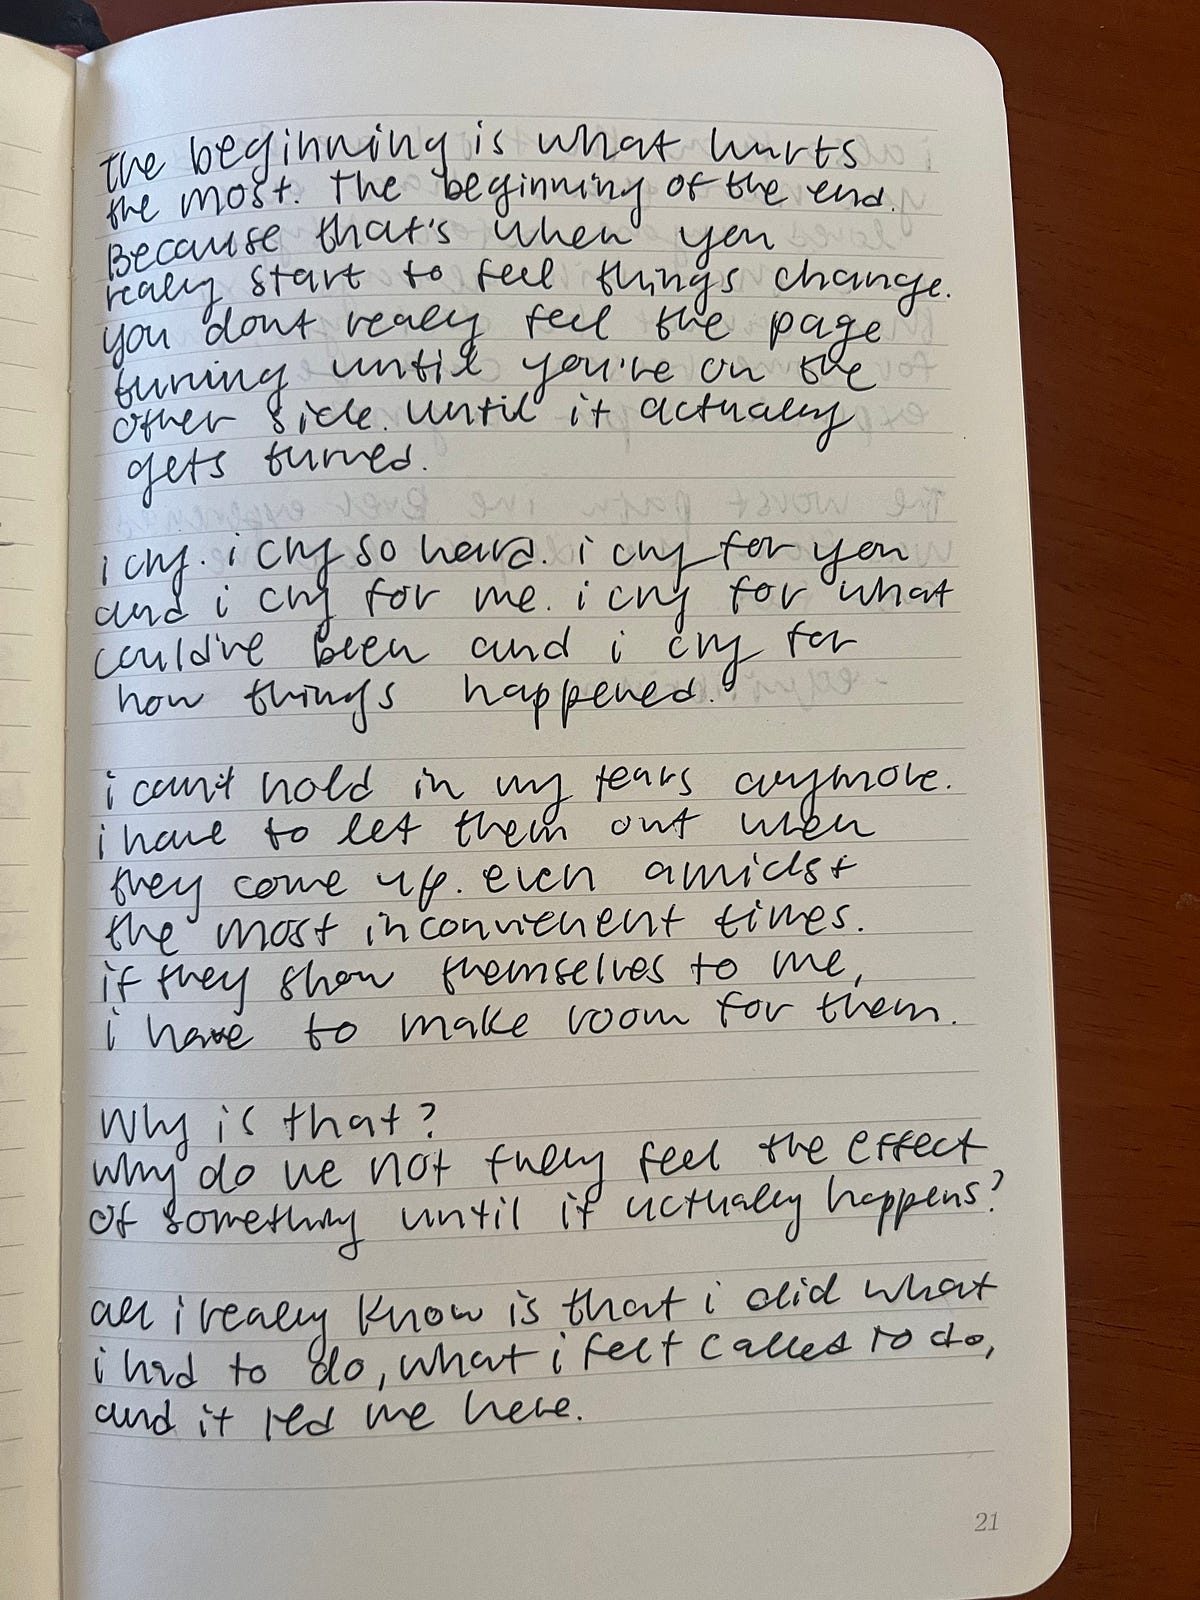 the beginning is what hurts
the most. The beginning of the end.
Because that's when you
really start to feel things change.
you dont really feel the page
turning until you're on the
other side. until it actually
gets turned.
i cry. i cry so hard. i cry for you
and i cry for me. i cry for what
could've been and i cry for
how things happened.
i can't hold in my tears anymore.
i have to let them out when
they come up. even amidst
the most inconvienent times.
if they show themselves to me,
i have to make room for them.
Why is that?
why do we not fully feel the effect
of something until it actually happens?
all i really know is that i did what
i had to do, what i felt called to do,
and it led me here.
21